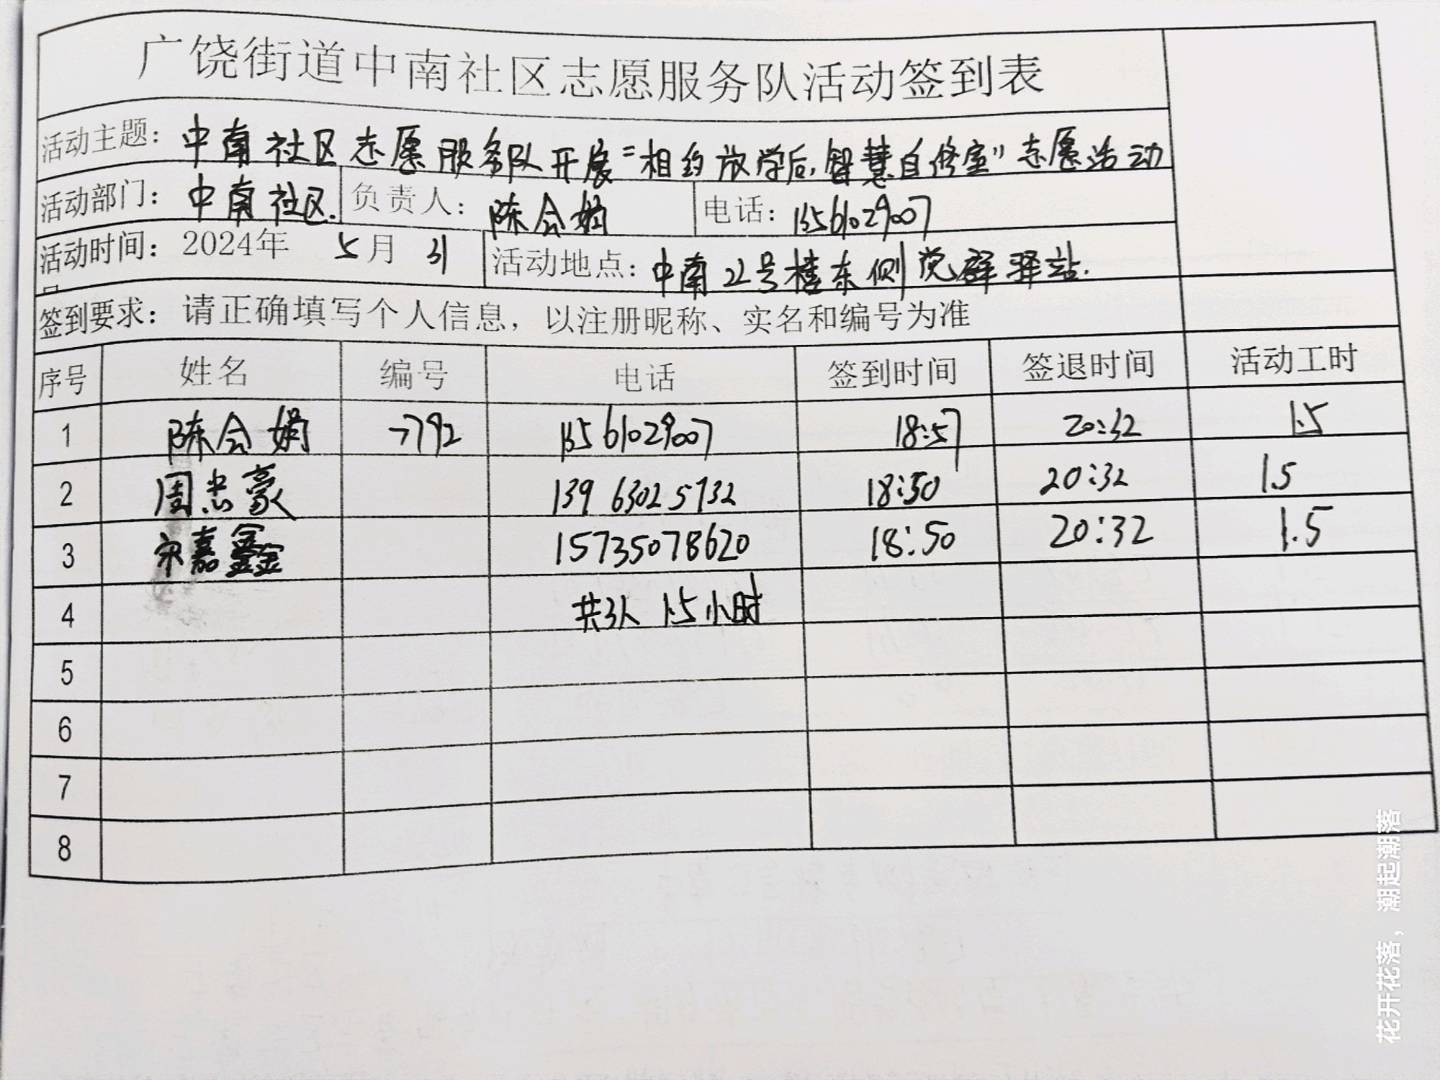 广饶街道中南社区志愿服务队活动签到表
活动主题：中南社区志愿服务队开展“相约放学后，智慧自修室”志愿活动
活动部门：中南社区. 负责人：陈会娟 电话：13561029007
活动时间：2024年 5月 31 活动地点：中南22号楼东侧党群驿站.
签到要求：请正确填写个人信息，以注册昵称、实名和编号为准
序号 姓名 编号 电话 签到时间 签退时间 活动工时
1 陈会娟 -7792 13561029007 18:57 20:32 1.5
2 周志豪 13963025732 18:50 20:32 1.5
3 宋嘉鑫 15735078620 18:50 20:32 1.5
4 共3人 1.5小时
5
6
7
8
花开花落，潮起潮落